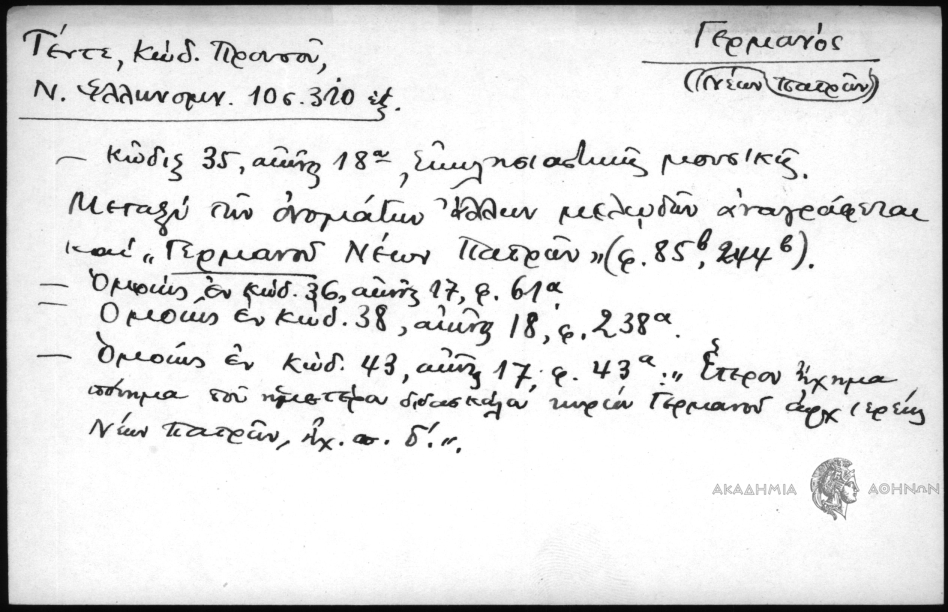 Γέντε, Κώδ. Προυσοῦ,
Ν. Ἑλληνομν. 10 σ. 320 ἑξ.
Γερμανός
(Νέων Πατρῶν)
— Κῶδιξ 35, αἰῶνος 18ου, Ἐκκλησιαστικῆς μουσικῆς.
Μεταξὺ τῶν ὀνομάτων ἄλλων μελῳδῶν ἀναγράφεται
καί „Γερμανοῦ Νέων Πατρῶν" (φ. 85β, 244β).
— Ὁμοίως ἐν κώδ. 36, αἰῶνος 17, φ. 61α
— Ὁμοίως ἐν κώδ. 38, αἰῶνος 18, φ. 238α.
— Ὁμοίως ἐν κώδ. 43, αἰῶνος 17, φ. 43α: „Ἕτερον ἤχημα
πόνημα τοῦ ἡμετέρου διδασκάλου κυρίου Γερμανοῦ ἀρχιερέως
Νέων Πατρῶν, ἦχ. π. δ΄.".
ΑΚΑΔΗΜΙΑ ΑΘΗΝΩΝ